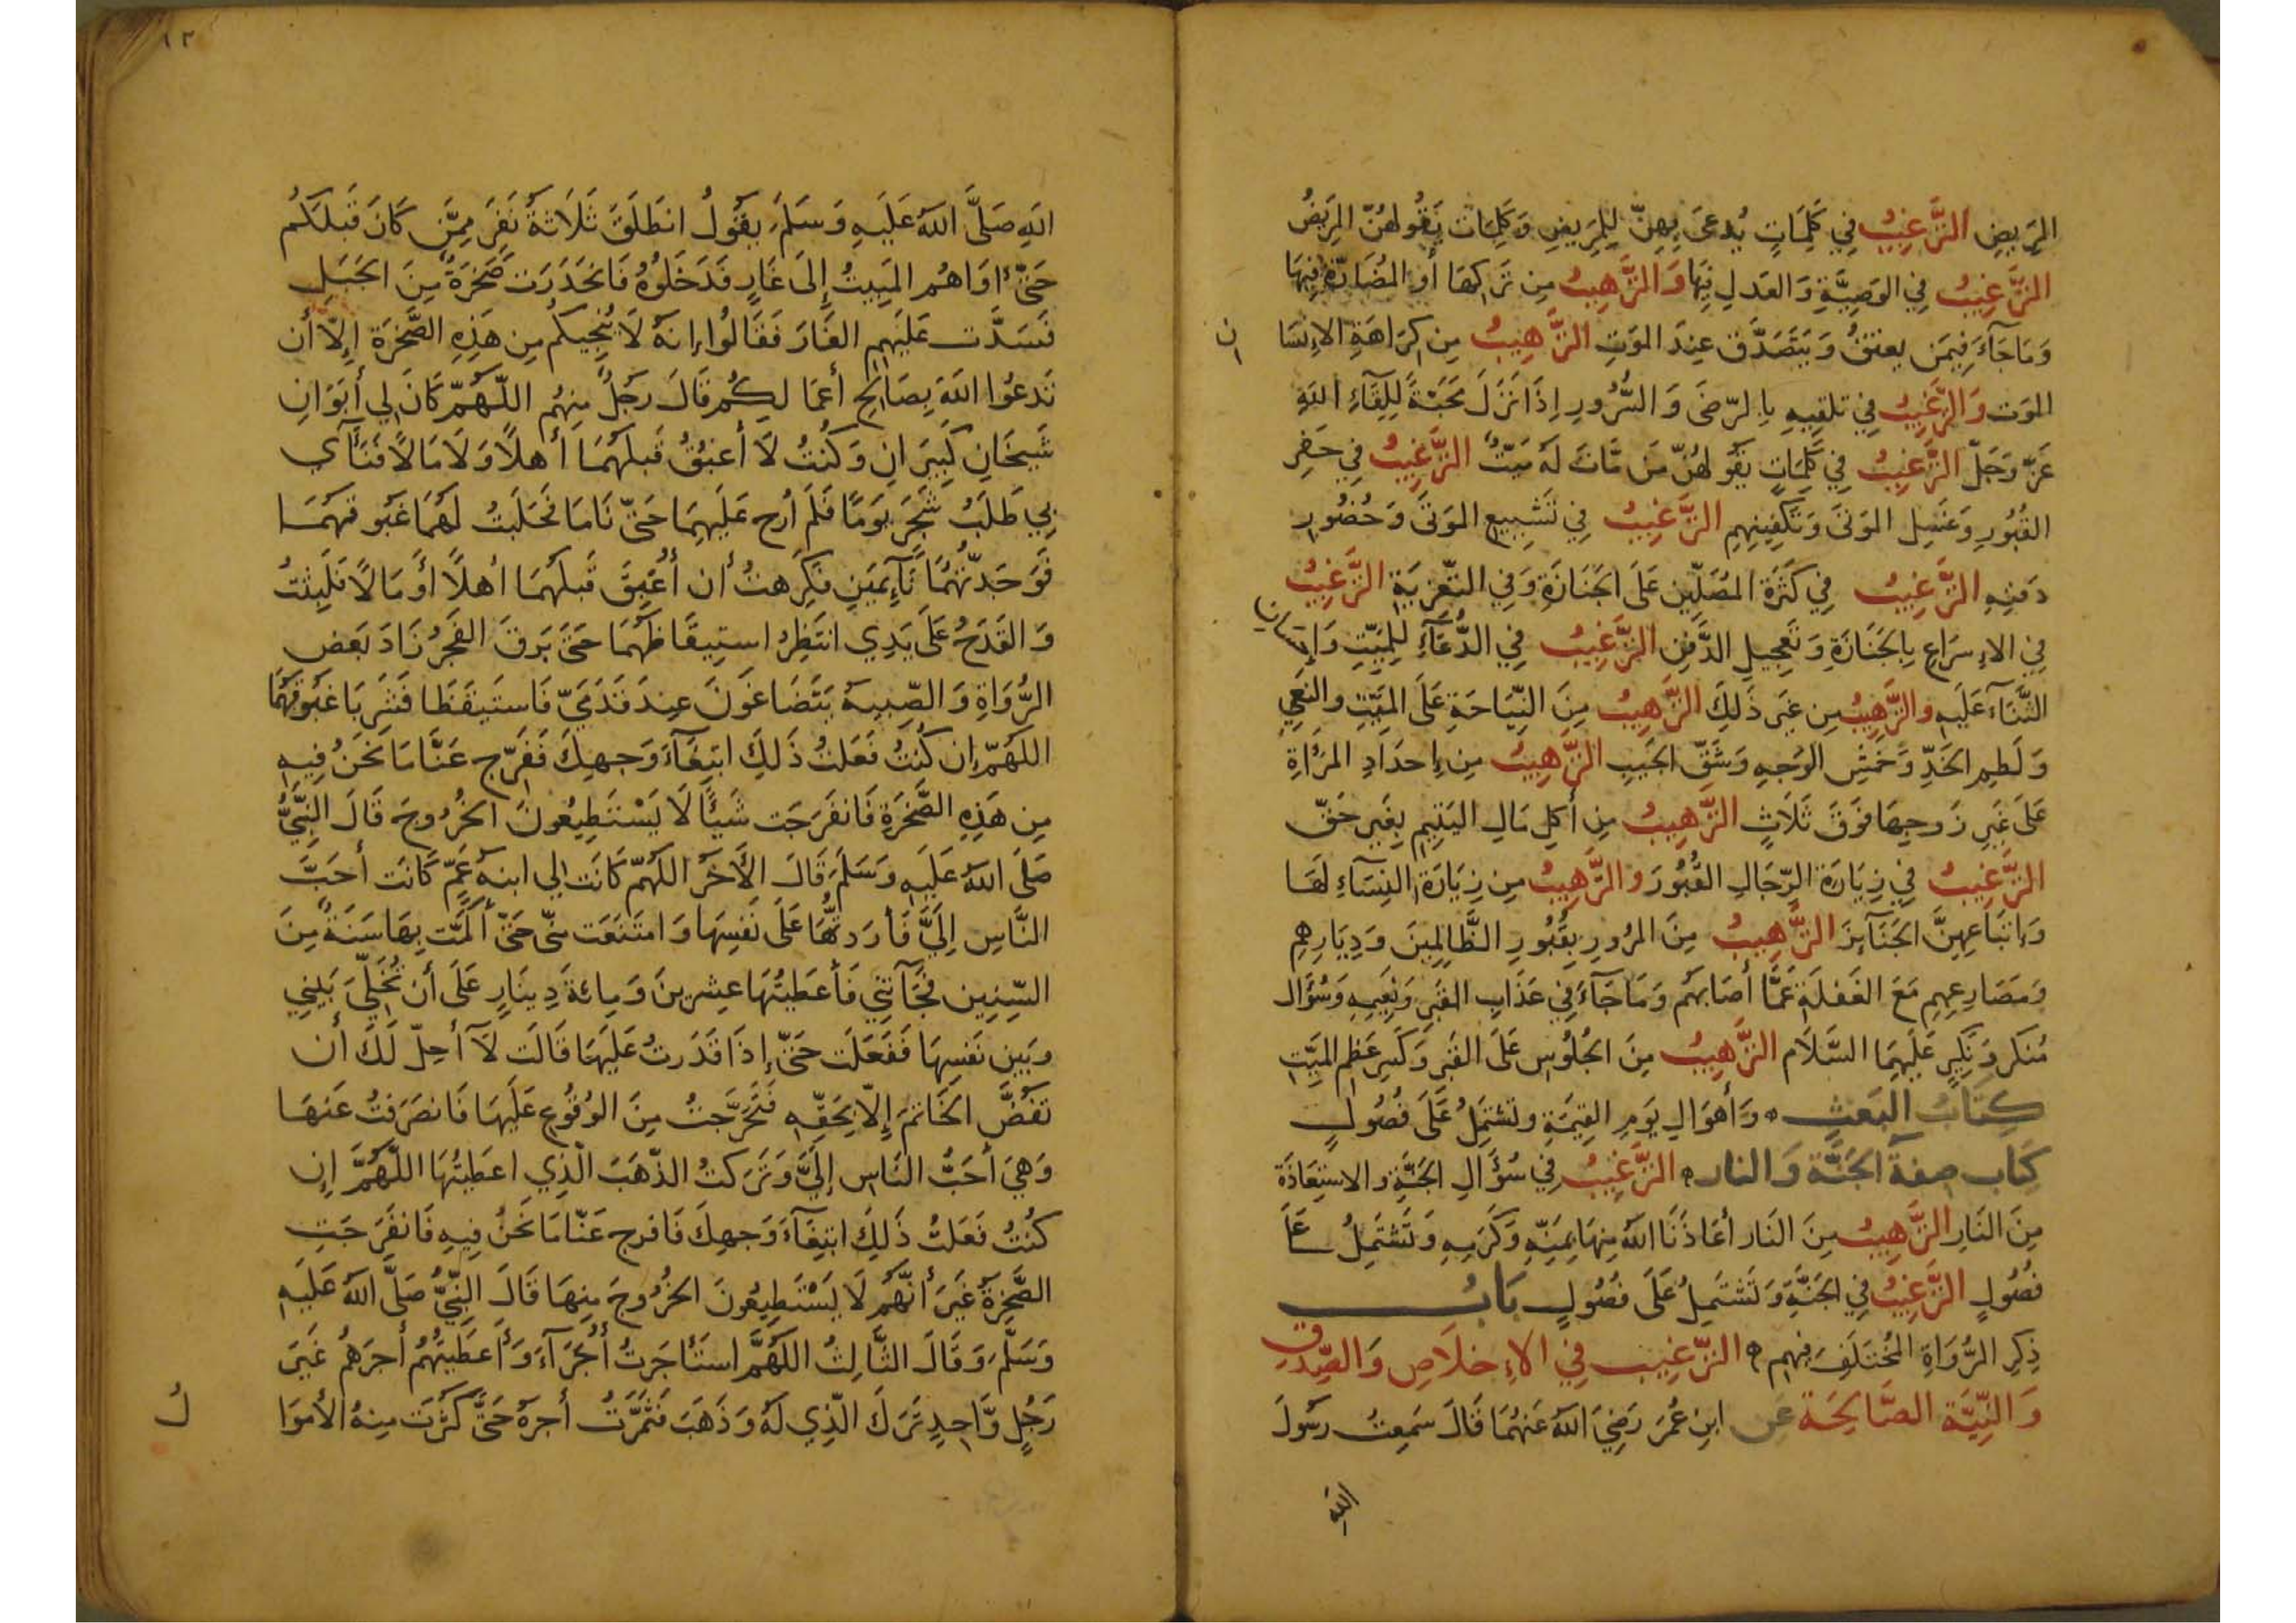 المَرِيضِ التَّرْغِيبُ فِي كَلِمَاتٍ يُدعَى بِهِنَّ لِلمَرِيضِ وَكَلِمَات يَقُولهُنّ المَرِيضُ
التَّرْغِيبُ فِي الوَصِيَّةِ وَالعَدلِ فِيهَا وَالتَّرْهِيبُ مِن تَركِهَا أَو المُضَارّةِ فِيهَا
وَمَا جَآءَ فِيمَن يعتقُ وَيَتَصَدَّق عِندَ المَوتِ التَّرْهِيبُ مِن كَرَاهَةِ الإِنسَا
ن
المَوت وَالتَّرْغِيبُ فِي تلقيهِ بِالرّضَى وَالسُّرُورِ اِذَا نَزَلَ مَحَبَّةً لِلِقَآءِ اللهِ
عَزّ وَجَلّ التَّرْغِيبُ فِي كَلِمَاتٍ يَقُولهُنّ مَن مَاتَ لَهُ مَيّتٌ التَّرْغِيبُ فِي حَفرِ
القُبُورِ وَغَسلِ المَوتَى وَتَكفِينِهِمِ التَّرْغِيبُ فِي تَشيِيعِ المَوتَى وَحُضُورِ
دَفنِهِ التَّرْغِيبُ فِي كَثرَةِ المُصَلِّين عَلَى الجَنَازَةِ وَفِي التَّعزيَةِ التَّرْغِيبُ
فِي الإِسرَاعِ بِالجَنَازَةِ وَتَعجِيلِ الدَّفنِ التَّرْغِيبُ فِي الدُّعَآءِ لِلمَيِّتِ وَإِحسَانِ
الثَّنَآءِ عَلَيهِ وَالتَّرْهِيبُ مِن غَيرِ ذَلِكَ التَّرْهِيبُ مِنَ النِّيَاحَةِ عَلَى المَيِّتِ والنَعيِ
وَلَطمِ الخَدِّ وَخَمشِ الوَجهِ وَشَقِّ الجَيبِ التَّرْهِيبُ مِن إِحدَادِ المَرأَةِ
عَلَى غَيرِ زَوجِهَا فَوقَ ثَلَاثٍ التَّرْهِيبُ مِن أَكلِ مَالِ اليَتِيمِ بِغَيرِ حَقّ
التَّرْغِيبُ فِي زِيَارَةِ الرِّجَالِ القُبُورَ وَالتَّرْهِيبُ مِن زِيَارَةِ النِسَآءِ لَهَا
وَاتّبَاعِهِنَّ الجَنَآئِزَ التَّرْهِيبُ مِنَ المرُورِ بِقُبُورِ الظَّالِمِينَ وَدِيَارِهِم
وَمَصَارِعِهِم مَعَ الغَفلَةِ عَمَّا أَصَابَهُم وَمَا جَآءَ فِي عَذَابِ القَبرِ وَنَعِيمِهِ وَسُؤَال
مُنكَر وَنَكِيرٍ عَلَيهِمَا السَّلَام التَّرْهِيبُ مِنَ الجُلُوسِ عَلَى القَبرِ وَكَسرِ عَظمِ المَيِّتِ
كِتَابُ البَعَثِ وَأَهوَالِ يَومِ القِيمَةِ وتَشتَمِلُ عَلَى فصُولٍ
كتَاب صِفَة الجَنَّة وَالنار التَّرْغِيبُ فِي سُؤَالِ الجَنَّةِ والاستِعَاذَة
مِنَ النَارِ التَّرْهِيبُ مِنَ النَار أَعَاذَنَا اللهُ مِنهَا بِمَنِّهِ وَكَرَمِهِ وَتَشتَمِلُ عَلَى
فصُولٍ التَّرْغِيبُ فِي الجَنَّةِ وَتَشتَمِلُ عَلَى فصُولٍ بَابُ
ذِكرِ الرُّوَاةِ المُختَلَفِ فِيهِم التَّرْغِيب فِي الإِخلَاصِ وَالصِّدقِ
وَالنِّيَّةِ الصَّالِحَةِ عَن ابنِ عُمَرَ رَضِيَ اللهُ عَنهُمَا قَالَ سَمِعتُ رَسُولَ
الله
١٣
اللهِ صَلَّى اللهُ عَلَيهِ وَسَلَمَ يَقُولُ انطَلَقَ ثَلَاثةُ نَفَرٍ مِمَّن كَانَ قَبلَكُم
حَتَّى اوَاهُم المَبِيتُ إِلَى غَارٍ فَدَخَلُوهُ فَانحَدَرَت صَخرَةٌ مِنَ الجَبَلِ
فَسَدَّت عَلَيهِم الغَارَ فَقَالُوا إِنهُ لَا يُنجِيكُم مِن هَذِهِ الصَّخرَةِ إِلَّا أَن
تَدعُوا اللهَ بِصَالِحِ أعمَا لِكُم قَالَ رَجُلٌ مِنهُم اللَّهُمّ كَانَ لِي أَبَوَانِ
شَيخَانِ كَبِيرَانِ وَكُنتُ لَا أَغبِقُ قَبلَهُمَا أَهلًا وَلَا مَالًا فَنَأَى
بِي طَلَبُ شَجَرٍ يَومًا فَلَم أُرِح عَلَيهِمَا حَتَّى نَامَا فَحَلَبتُ لَهُمَا غبُوقَهُمَا
فَوَجَدتُّهُمَا نَآئِمَينِ فكَرِهتُ أَن أُغبِقَ قَبلَهُمَا أَهلًا أَو مَالًا فَلَبِثتُ
وَالقَدَحُ عَلَى يَدِي انتَظِرُ استِيقَاظَهُمَا حَتَّى بَرَقَ الفَجرُ زَادَ بَعض
الرُّوَاةِ وَالصِّبيهُ يَتَضَاغَونَ عِندَ قَدَمَيّ فَاستَيقَظَا فَشَرِبَا غَبُوقَهُمَا
اللَّهُمّ إِن كُنتُ فَعَلتُ ذَلِكَ ابتِغَآءَ وَجهِكَ فَفَرِّج عَنَّا مَا نَحنُ فِيهِ
مِن هَذِهِ الصَّخرَةِ فَانفَرَجَت شَيئًا لَا يَسْتَطِيعُونَ الخُرُوجَ قَالَ النَّبِيُّ
صَلَى اللهُ عَلَيهِ وَسَلَمَ قَالَ الآخَر اللَّهُمّ كَانَت لِي ابنَةُ عَمّ كَانَت أَحَبَّ
النَّاسِ إِلَيَّ فَأَرَدتُّهَا عَلَى نَفسِهَا وَامتَنَعَت مِنّي حَتَّى أَلَمَّت بِهَا سَنَةٌ مِنَ
السِّنِين فَجَآءَتنِي فَأَعطَيتُهَا عِشرِينَ وَمِائةَ دِينَارٍ عَلَى أَن تُخَلِّيَ بَينِي
وَبَينَ نَفسِهَا فَفَعَلَت حَتَّى إِذَا قَدَرتُ عَلَيهَا قَالَت لَا أُحِلّ لَكَ أَن
تَفُضَّ الخَاتَمَ إِلَّا بِحَقِّهِ فَتَحَرَّجتُ مِنَ الوُقُوعِ عَلَيهَا فَانصَرَفتُ عَنهَا
وَهِيَ أَحَبُّ النَاسِ إِلَيَّ وَتَرَكتُ الذَّهَبَ الَّذِي اعطَيتُهَا اللَّهُمَّ إِن
كُنتُ فَعَلتُ ذَلِكَ ابتِغَآءَ وَجهِكَ فَافرج عَنّا مَا نَحنُ فِيهِ فَانفَرَجَتِ
الصَّخرَةُ غَيرَ أَنَّهُم لَا يَسْتَطِيعُونَ الخُرُوجَ مِنهَا قَالَ النَّبِيُّ صَلَّى اللهُ عَلَيهِ
وَسَلَّمَ وَقَالَ الثَّالِثُ اللَّهُمَّ استَأجَرتُ أُجَرَآءَ وَأَعطَيتُهُم أَجرَهُم غَيرَ
رَجُلٍ وَّاحِدٍ تَرَكَ الَّذِي لَهُ وَذَهَبَ فَثَمَّرتُ أَجرَهُ حَتَّى كَثُرَت مِنهُ الأَموَا
لُ